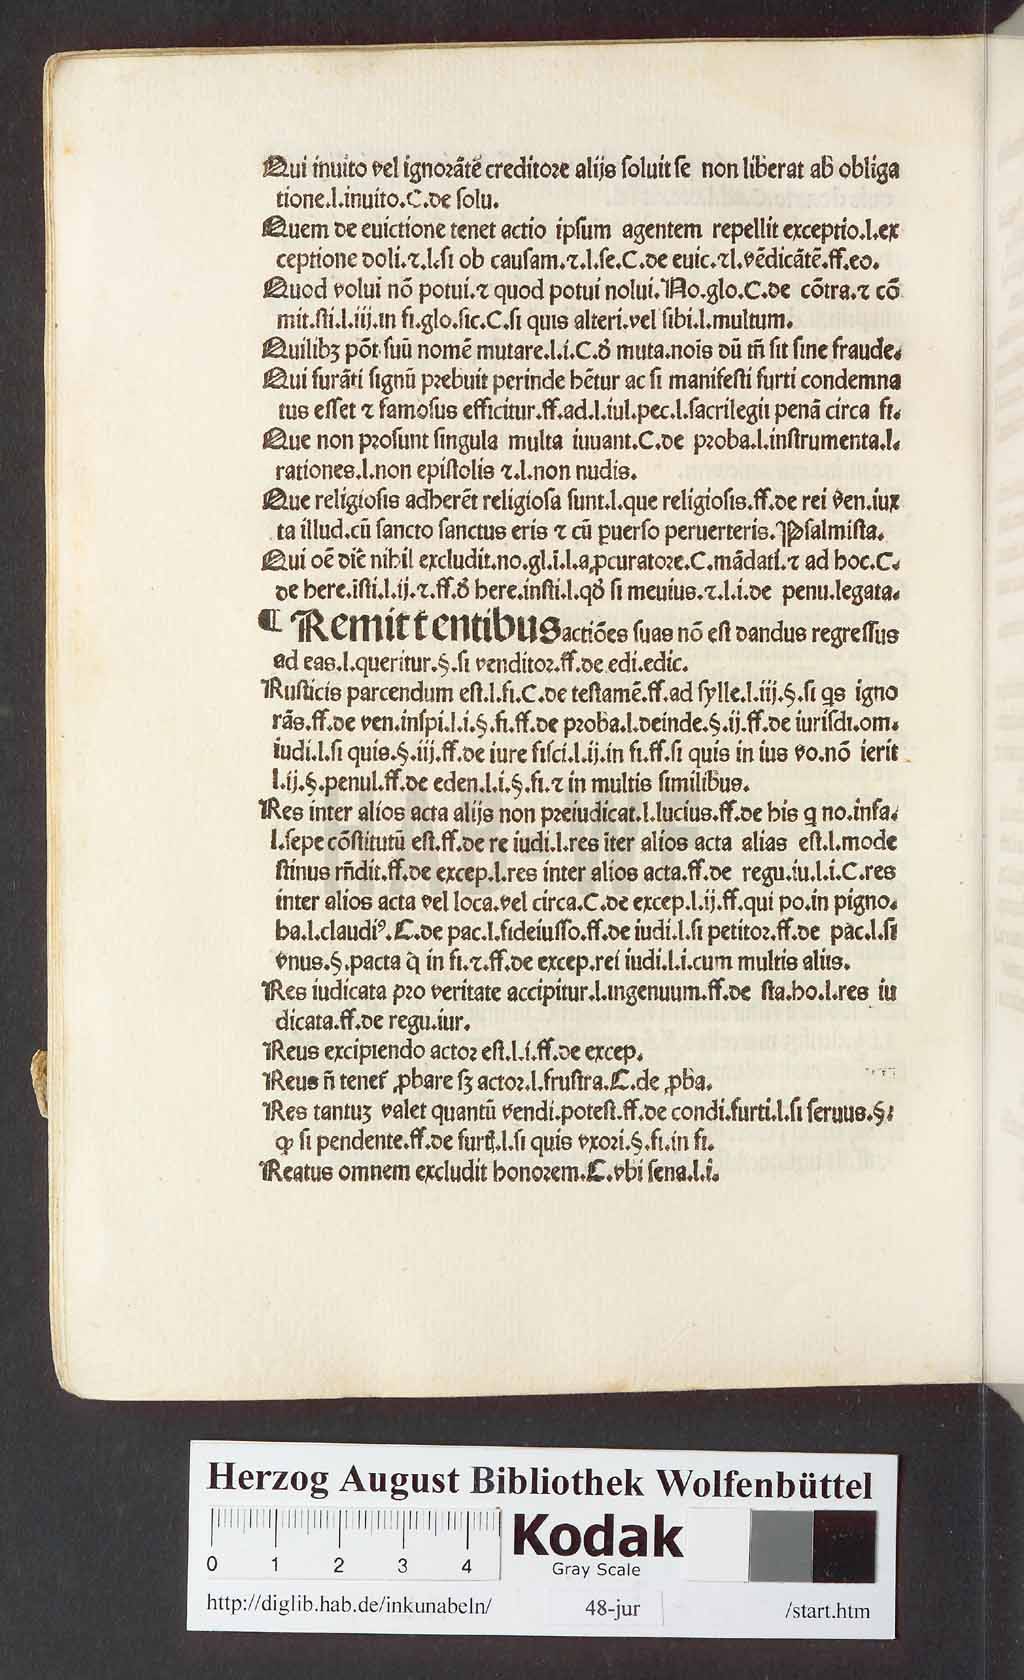 Qui inuito vel ignorãtẽ creditore alijs soluit se non liberat ab obliga
tione.l.inuito.C.de solu.
Quem de euictione tenet actio ipsum agentem repellit exceptio.l.ex
ceptione doli.⁊.l.si ob causam.⁊.l.se.C.de euic.⁊l.vẽdicãtẽ.ff.eo.
Quod volui nõ potui.⁊ quod potui nolui.No.glo.C.de cõtra.⁊ cõ
mit.sti.l.iij.in fi.glo.sic.C.si quis alteri.vel sibi.l.multum.
Quilibꝫ põt suũ nomẽ mutare.l.i.C.ð muta.nois dũ tñ sit sine fraude.
Qui furãti signũ prebuit perinde hẽtur ac si manifesti furti condemna
tus esset ⁊ famosus efficitur.ff.ad.l.iul.pec.l.sacrilegii penã circa fi.
Que non prosunt singula multa iuuant.C.de proba.l.instrumenta.l.
rationes.l.non epistolis ⁊.l.non nudis.
Que religiosis adherẽt religiosa sunt.l.que religiosis.ff.de rei ven.iux
ta illud.cũ sancto sanctus eris ⁊ cũ ꝑuerso peruerteris.Psalmista.
Qui oẽ diẽ nihil excludit.no.gl.i.l.a ꝓcuratore.C.mãdati.⁊ ad hoc.C.
de here.ĩsti.l.ij.⁊.ff.ð here.insti.l.qð si meuius.⁊.l.i.de penu.legata.
¶ Remittentibus actiões suas nõ est dandus regressus
ad eas.l.queritur.§.si venditor.ff.de edi.edic.
Rusticis parcendum est.l.fi.C.de testamẽ.ff.ad sylle.l.iij.§.si qs igno
rãs.ff.de ven.inspi.l.i.§.fi.ff.de proba.l.deinde.§.ij.ff.de iurisdi.om.
iudi.l.si quis.§.iij.ff.de iure fisci.l.ij.in fi.ff.si quis in ius vo.nõ ierit
l.ij.§.penul.ff.de eden.l.i.§.fi.⁊ in multis similibus.
Res inter alios acta alijs non preiudicat.l.lucius.ff.de his q no.infa.
l.sepe cõstitutũ est.ff.de re iudi.l.res ĩter alios acta alias est.l.mode
stinus rñdit.ff.de excep.l.res inter alios acta.ff.de regu.iu.l.i.C.res
inter alios acta vel loca.vel circa.C.de excep.l.ij.ff.qui po.in pigno.
ha.l.claudiꝰ.C.de pac.l.fideiusso.ff.de iudi.l.si petitor.ff.de pac.l.si
vnus.§.pacta q̃ in fi.⁊.ff.de excep.rei iudi.l.i.cum multis aliis.
Res iudicata pro veritate accipitur.l.ingenuum.ff.de sta.ho.l.res iu
dicata.ff.de regu.iur.
Reus excipiendo actor est.l.i.ff.de excep.
Reus ñ tenet̃ ꝓbare sꝫ actor.l.frustra.C.de ꝓba.
Res tantuꝫ valet quantũ vendi.potest.ff.de condi.furti.l.si seruus.§.
ꝙ si pendente.ff.de furt.l.si quis vxori.§.fi.in fi.
Reatus omnem excludit honorem.C.vbi sena.l.i.
HAB-WF
Herzog August Bibliothek Wolfenbüttel
0 1 2 3 4
Kodak
Gray Scale
http://diglib.hab.de/inkunabeln/ 48-jur /start.htm